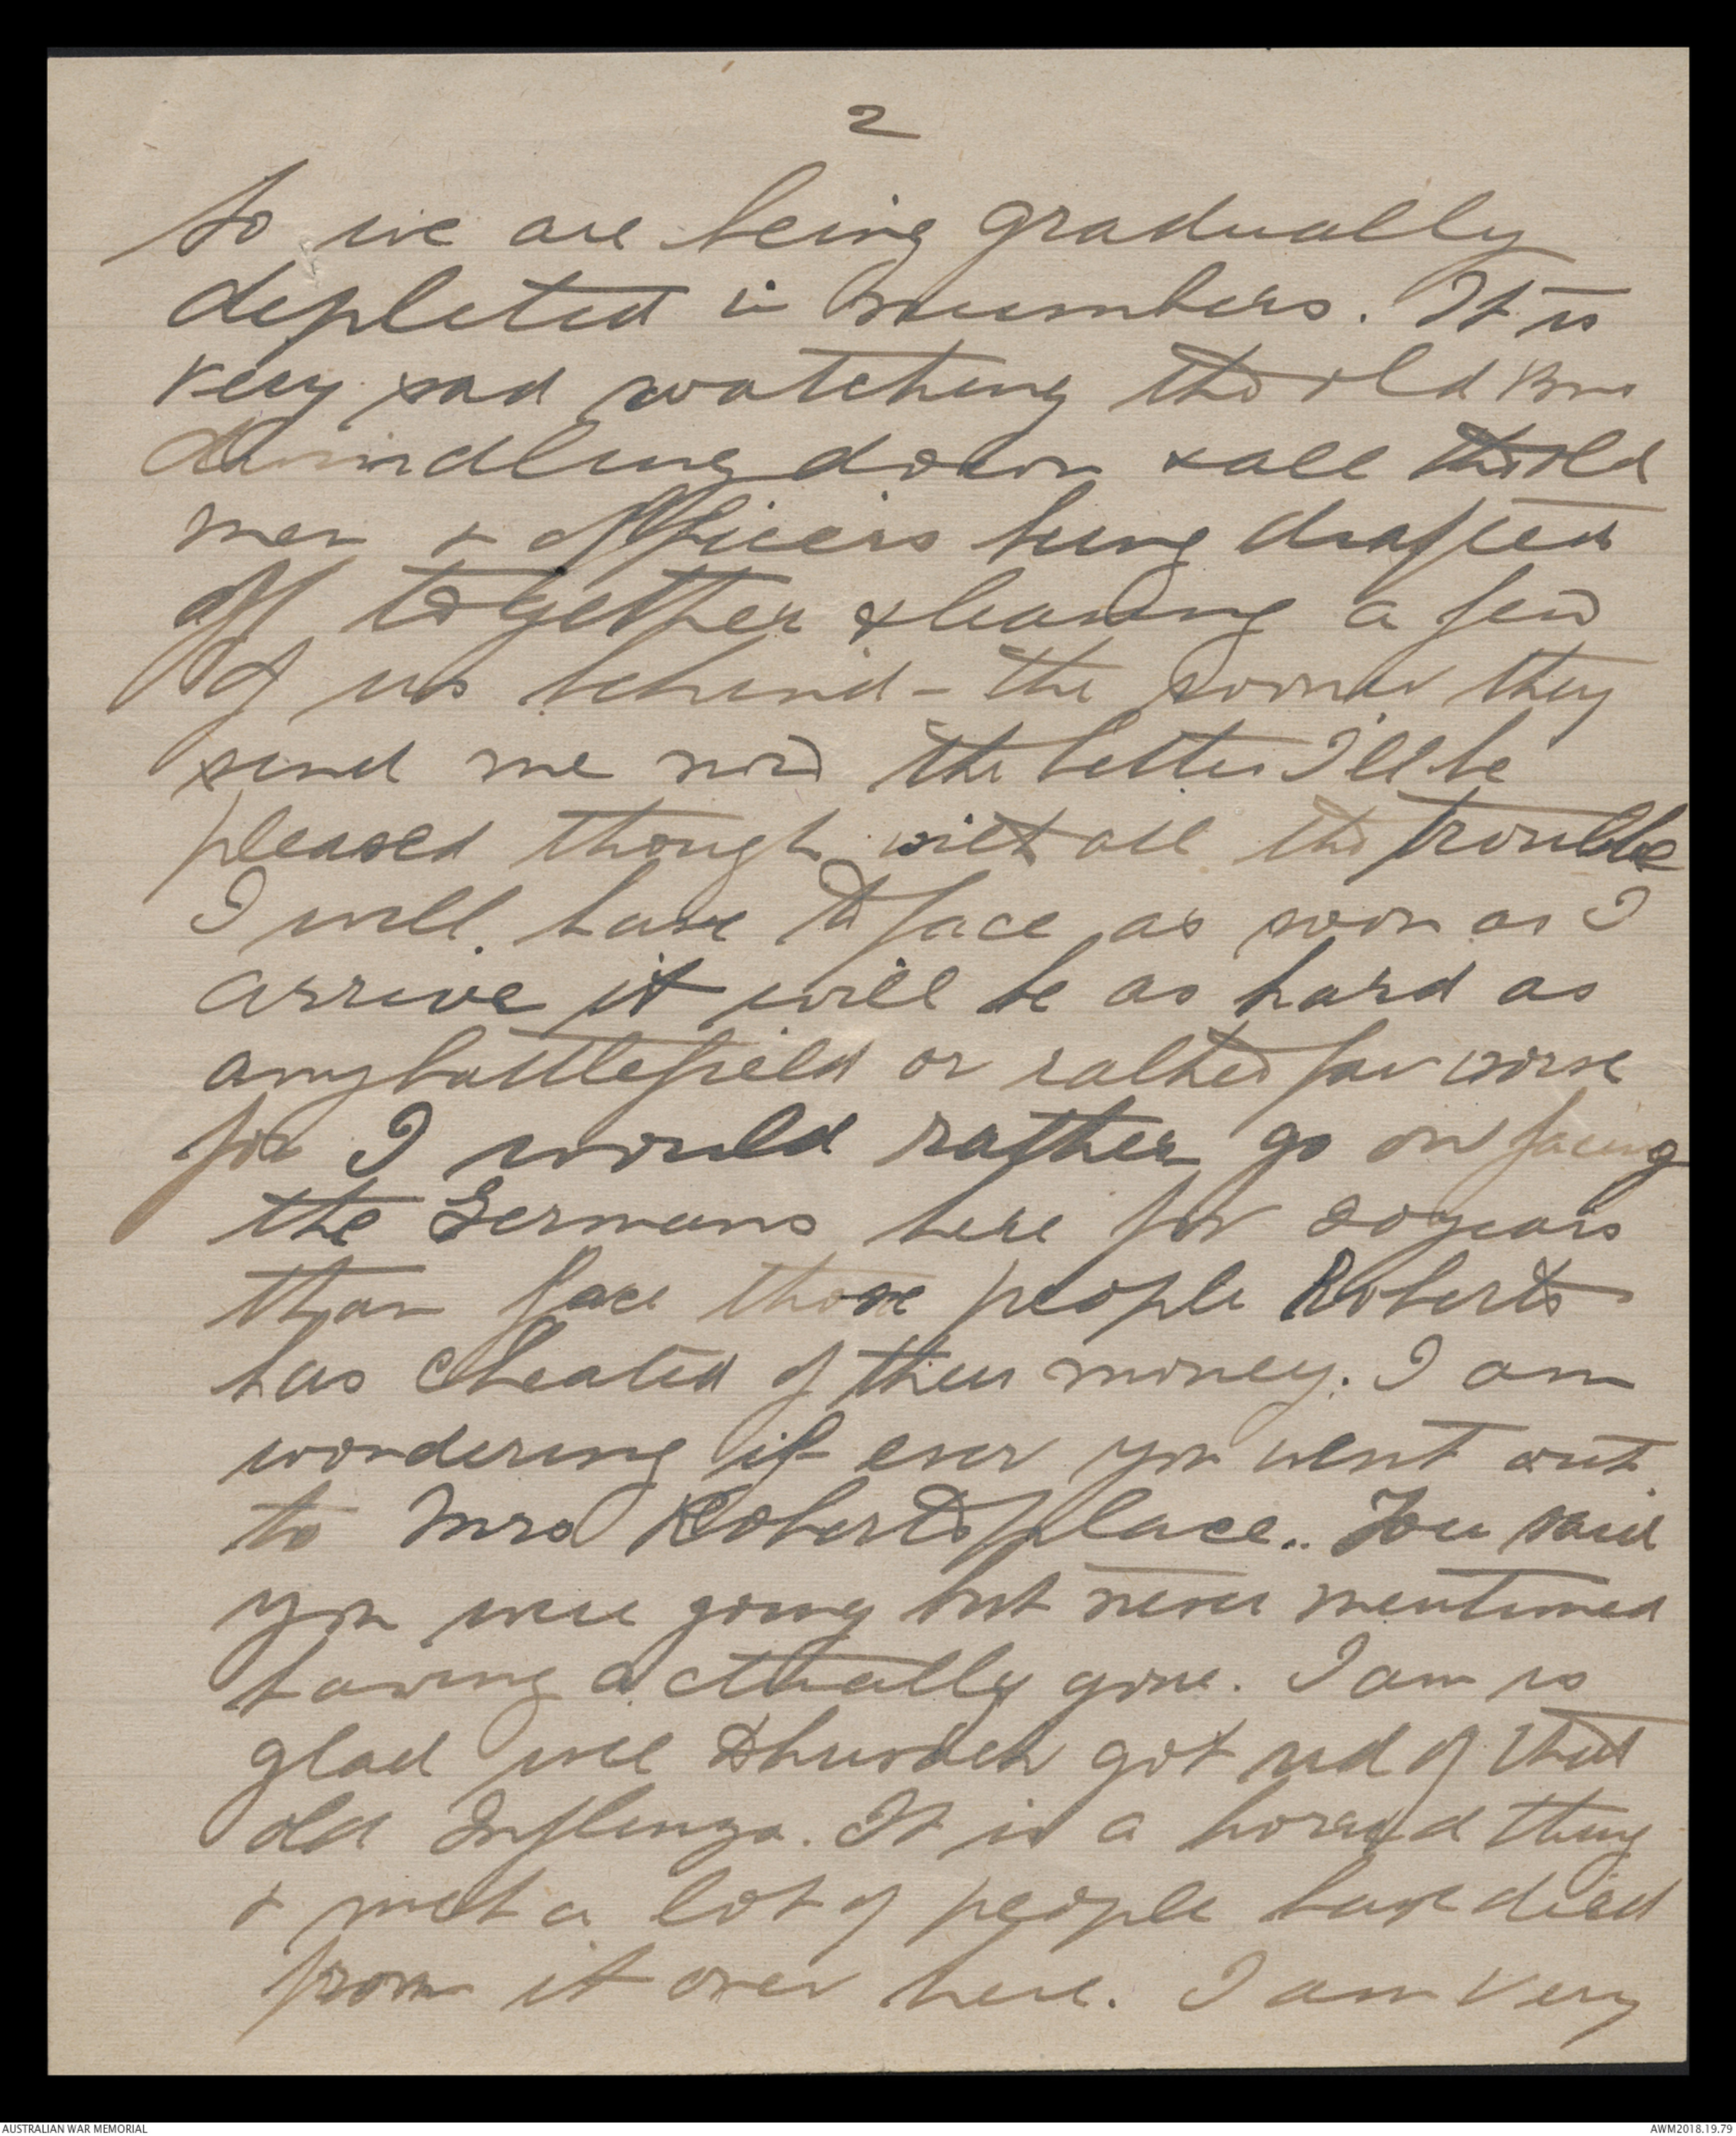 2
So we are being gradually
depleted in numbers. It is
very sad watching the old Bn
dwindling down & all the old
men & officers being drafted
off together & leaving a few
of us behind - the sooner they
send me now the better I'll be
pleased though with all the trouble
I will have to face as soon as I
arrive it will be as hard as
any battlefield or rather far worse
for I would rather go on facing
the Germans here for 20 years
than face those people Roberts
has cheated of their money. I am
wondering if ever you went out
to Mrs Roberts place.. You said
you were going but never mentioned
having actually gone. I am so
glad you got rid of that
old Influenza. It is a horrid thing
& a lot of people have died
from it over here. I am very
AUSTRALIAN WAR MEMORIAL
AWM2018.19.79